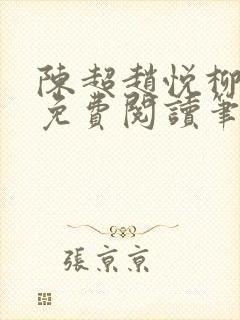 陳超趙悅柳
免費閱讀筆
張京京